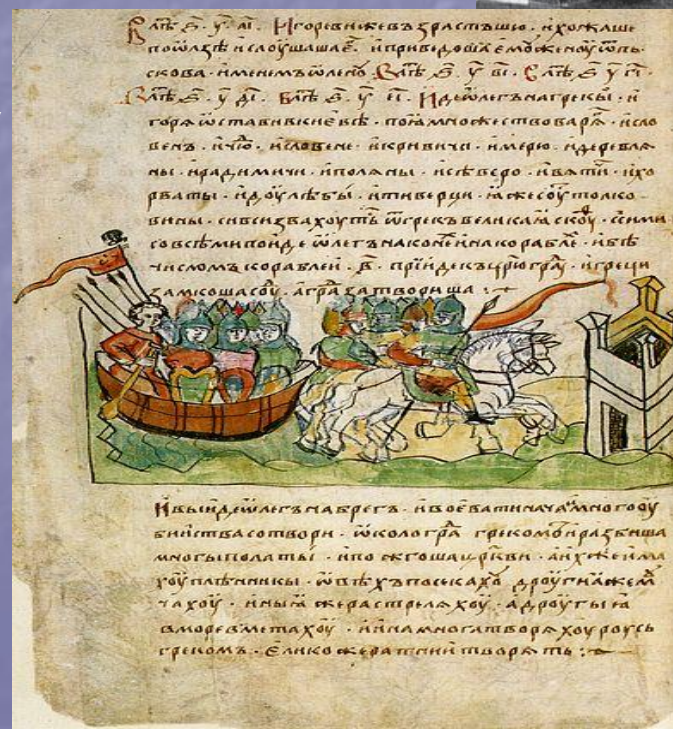 В лѣⷮ ҂ѕ҃ у҃ аі҃ · Игореви же възрастъшю · и хожаше
по ѡлзѣ и слоушаше еⷢ · и приведоша емоу женоу ѿ пь
скова · именемъ ѡленоу В лѣⷮ ҂ѕ҃ у҃ ві҃ · В лѣⷮ ҂ѕ҃ у҃ гі҃ ·
В лѣⷮ ҂ѕ҃ у҃ ді҃ · В лѣⷮ ҂ѕ҃ у҃ еі҃ · Иде ѡлегъ на грекы · и
горѧ ѡставив в киевѣ · поѧ множество варѧⷢ · и сло
венъ · и чюⷣ · и словене · и кривичи · и мерю · и деревлѧ
ны · и радимичи · и полѧны · и сѣверо · и вѧтичи · и хо
рваты · и доулѣбы · и тиверци · ꙗже соуⷮ толко
вины · си вси звахоуть ѿ грекъ великаꙗ скоуⷴ · сими
со всѣми поиде ѡлегъ на конеи и на кораблѣ · и бѣ
числомъ кораблеи · в҃ · прїиде къ цр҃югрⷣа · и греци
замкоша соуⷣ · а граⷣ затвориша :
И выиде ѡлегъ на брегъ · и воевати нача и много оу
бииства сотвори · ѡколо граⷣ грекоⷨ и разбиша
многы полаты · и пожгоша цр҃кви · а их же има
хоу плѣнникы · ѡвѣхъ посекахоⷹ дроугиꙗ же моⷱ
чахоу · иныꙗ же растрелѧхоу · а дроугыꙗ
в море вметахоу · и ина многа творѧхоу роусь
грекомъ · елико же ратнии творѧть :